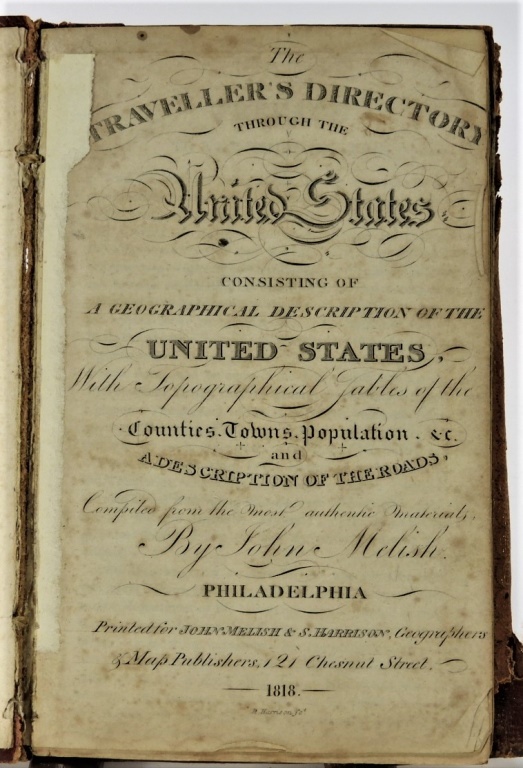 The
TRAVELLER'S DIRECTORY
THROUGH THE
United States,
CONSISTING OF
A GEOGRAPHICAL DESCRIPTION OF THE
UNITED STATES,
With Topographical Tables of the
Counties, Towns, Population, &c.
and
A DESCRIPTION OF THE ROADS,
Compiled from the most authentic materials,
By John Melish.
PHILADELPHIA
Printed for JOHN MELISH & S. HARRISON, Geographers
& Map Publishers, 121 Chesnut Street.
1818.
Harrison Sct